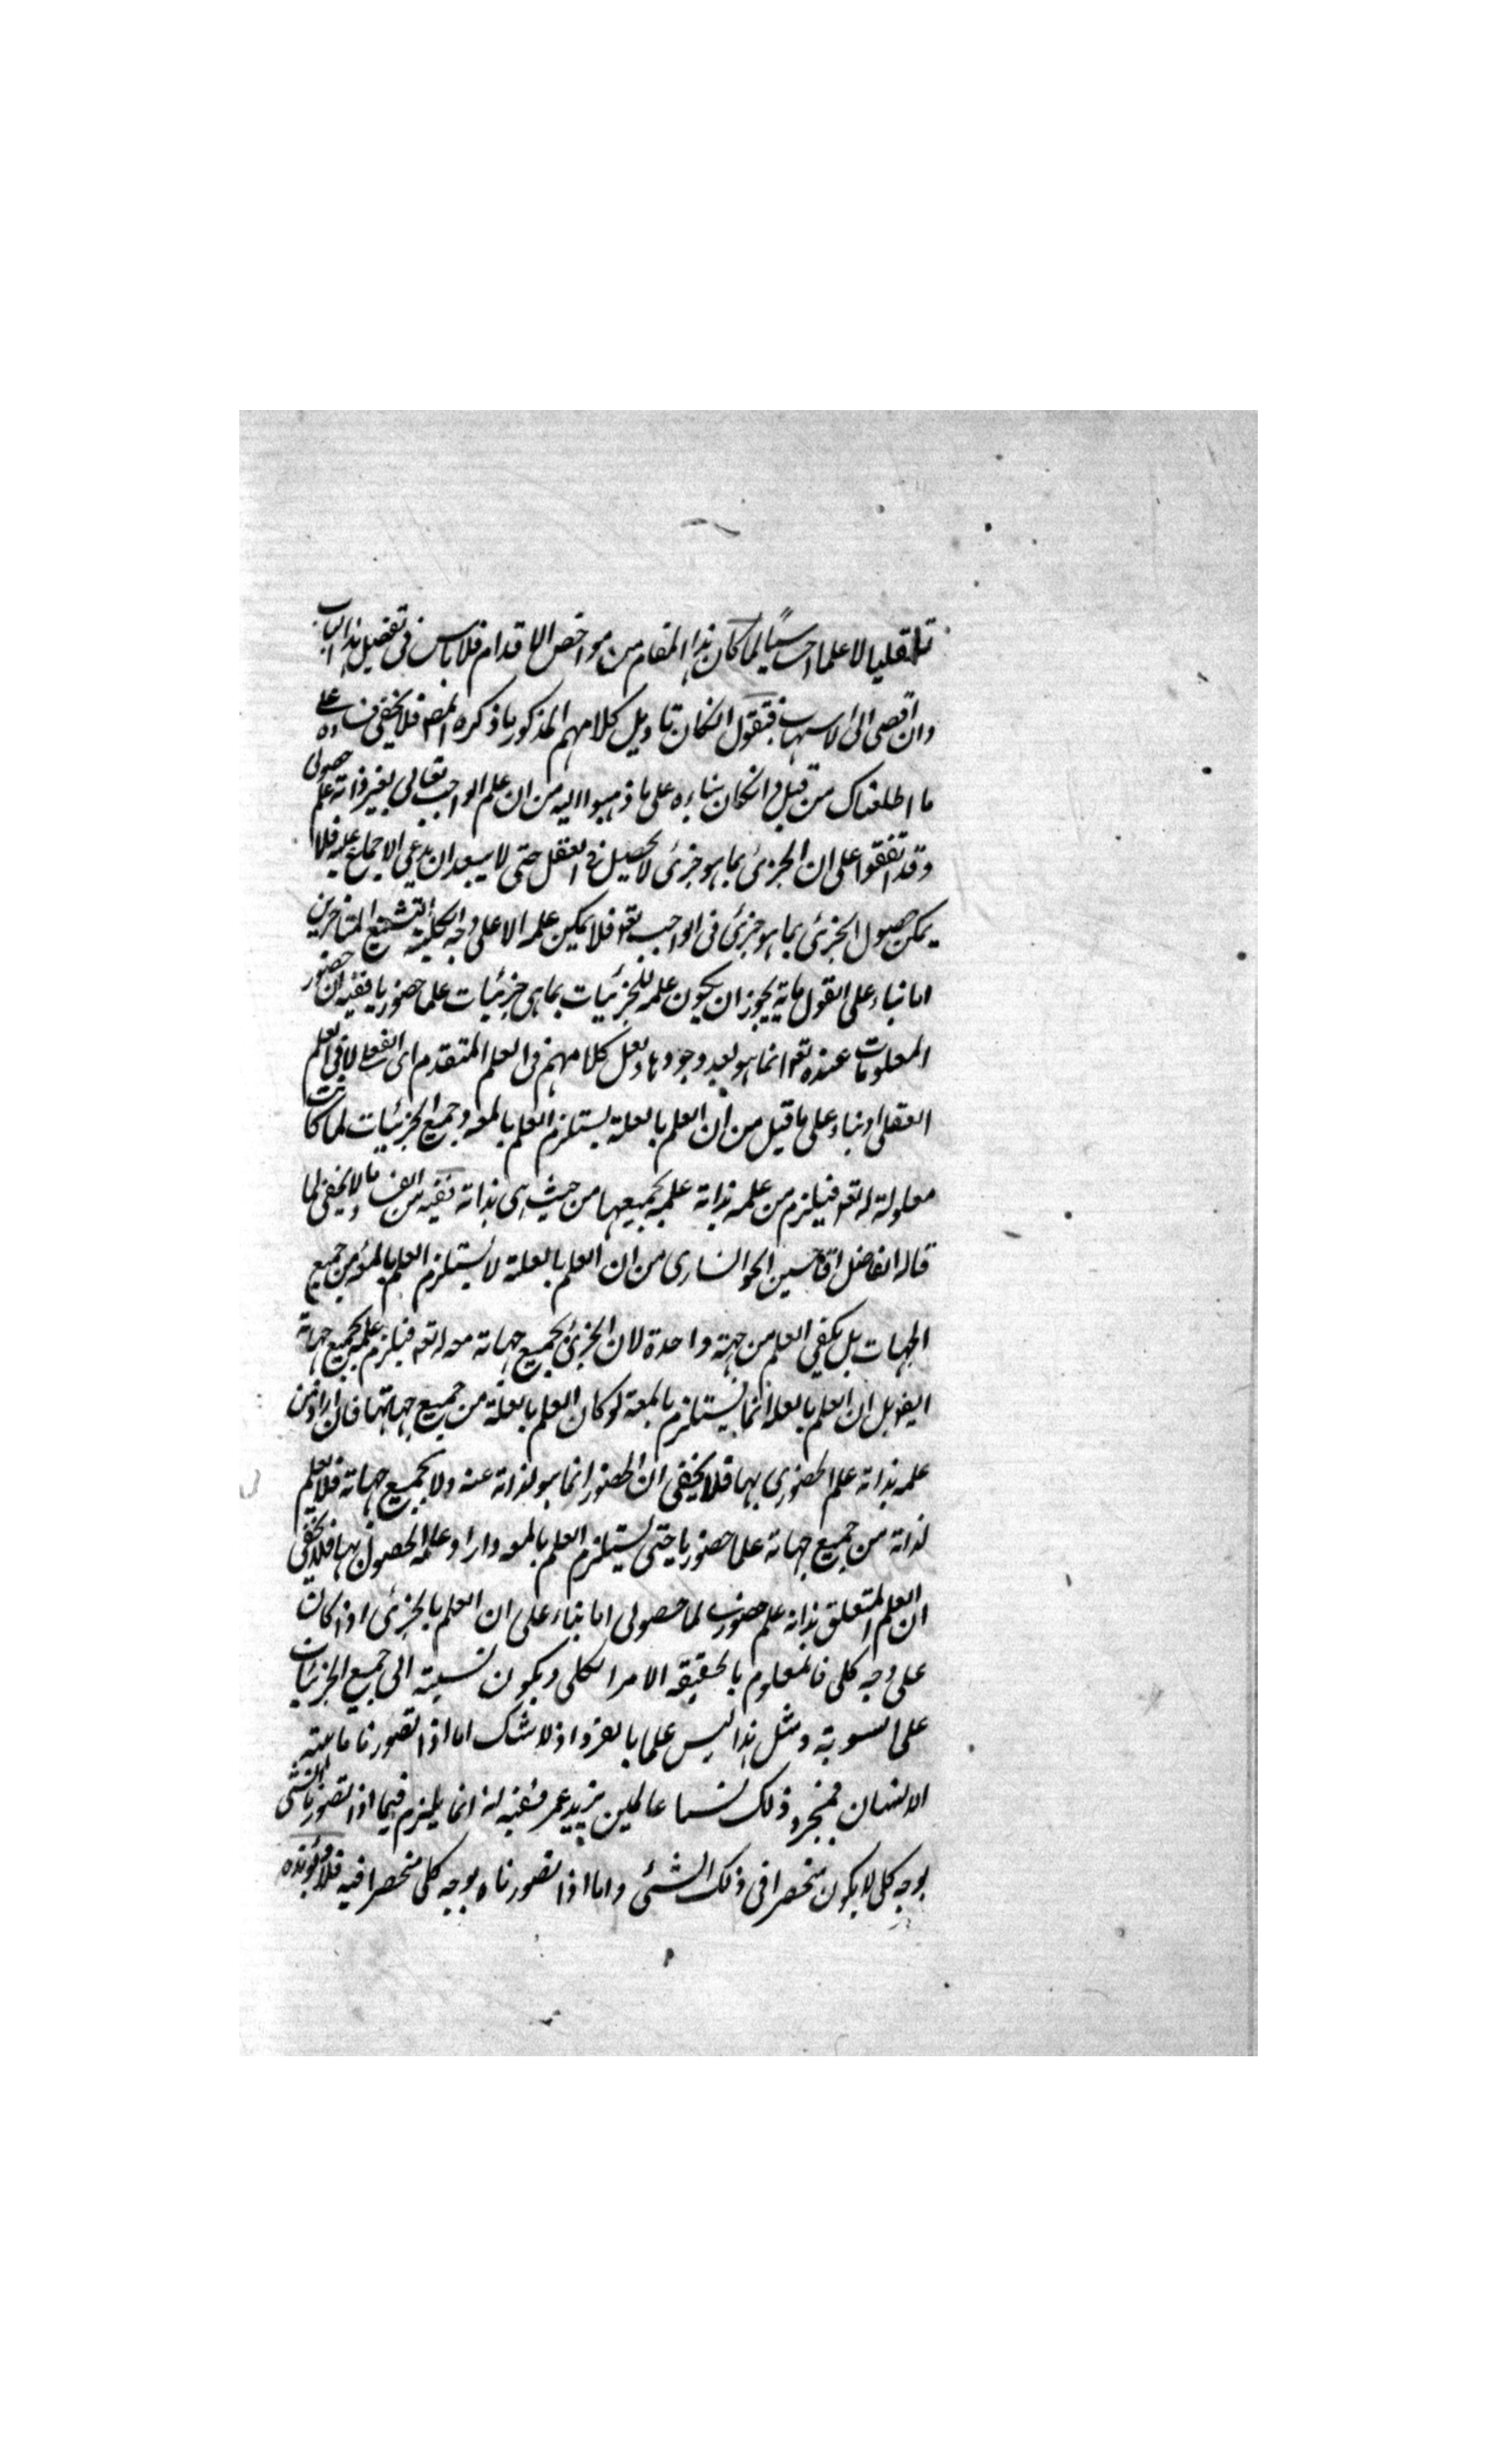 تعقليا لا علما احساسيا لما كان هذا المقام من مواحض الاقدام فلا باس فى تفصيل هذا الباب
وان اقصى الى الاسهاب فنقول انكان تاويل كلامهم المذكور ما ذكره المص فلا يخفى فساده على
ما اطلعناك من قبل وانكان بناءه على ما ذهبوا اليه من ان علم الواجب تعالى بغير ذاته علم حصولى
وقد اتفقوا على ان الجزئى بما هو جزئى لا يحصل فى العقل حتى لا يبعد ان يدعى الاجماع عليه فلا
يمكن حصول الجزئى بما هو جزئى فى الواجب تعه فلا يمكن علمه الا على وجه الكلية فتشنيع المتاخرين
اما بناء على القول بانه يجوز ان يكون علمه للجزئيات بما هى جزئيات علما حضوريا ففيه ان حضور
المعلومات عنده تعه انما هو بعد وجودها ولعل كلامهم فى العلم المتقدم اى الفعلى لا فى العلم
العقلى او بناء على ما قيل من ان العلم بالعلة يستلزم العلم بالمعه وجميع الجزئيات لما كانت
معلولة له تعه فيلزم من علمه بذاته علمه بجميعها من حيث هى بذاته ففيه من الفساد ما لا يخفى لما
قاله الفاضل اقا حسين الخوانسارى من ان العلم بالعلة لا يستلزم العلم بالمعه من جميع
الجهات بل يكفى العلم من جهة واحدة لان الجزئى بجميع جهاته معه له تعه فيلزم علمه بجميع جهاته
ايضا بل ان العلم بالعلة انما يستلزم بالمعه لو كان العلم بالعلة من جميع جهاتها فان اراد من
علمه بذاته علم الحضورى بها فلا يخفى ان الحضور انما هو لذاته عنده ولا بجميع جهاته فلا يعلم
لذاته من جميع جهاته علما حضوريا حتى يستلزم العلم بالمعه وار اد علمه الحصولى بها فلا يخفى
ان العلم المتعلق بذاته علم حضورى لما حصولى اما بناء على ان العلم بالجزئى اذا كان
على وجه كلى فالمعلوم بالحقيقة الامر الكلى ويكون نسبته الى جميع الجزئيات
على السوية ومثل هذا ليس علما بالفرد اذ لا شك اما اذا تصورنا ماهية
الانسان فبمجرد ذلك لسنا عالمين بزيد وعمر ففيه انه انما يلزم فيما اذا تصورنا الشئ
بوجه كلى لا يكون منحصرا فى ذلك الشئ واما اذا تصورناه بوجه كلى منحصر فيه فلا